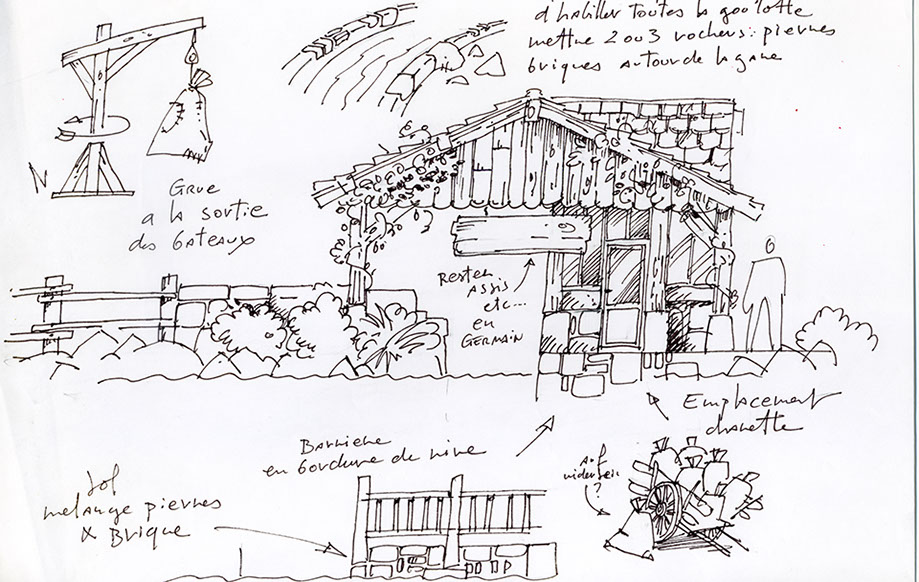 d'habiller toutes la goulotte
mettre 2 ou 3 rochers : pierres
briques autour de la gare
GRUE
a la sortie
des bateaux
N
RESTER
ASSIS
etc...
en
GERMAIN
Emplacement
charette
BARRIERE
en bordure de rive
sol
melange pierres
& BRIQUE
auf
?